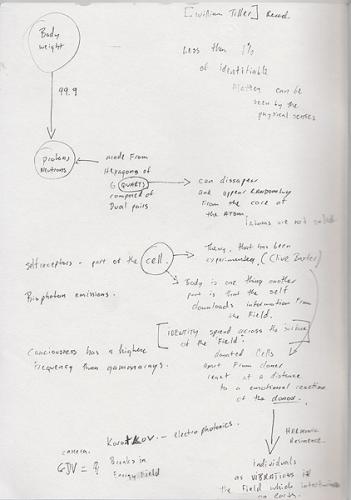 [William Tiller]
Body
weight
Less than 1%
of identifiable
Matter can be
seen by the
physical senses
99.9
Protons
Neutrons
made From
Hexagons of
6 QUARKS
composed of
Dual pairs
can dissapear
and appear RANDOMLY
From the core of
the ATOM.
Atoms are not solid
self receptors - part of the cell
Theory that has been
experimented. (Clive Baxter)
Body is one thing another
part is that the self
downloads information From
the Field.
Bio photon emissions.
[IDENTITY spread across the surface
of the "Field".
donated Cells
apart From doner
react at a distance
to a emotional reaction
of the donor.
Conciousness has a higher
frequency than gamma rays.
HARMONIC
Resonance
Korotkov - electro photonics.
camera
GDV =
Breaks in
Energy Field
individuals
as VIBRATIONS in
the Field which
on earth.